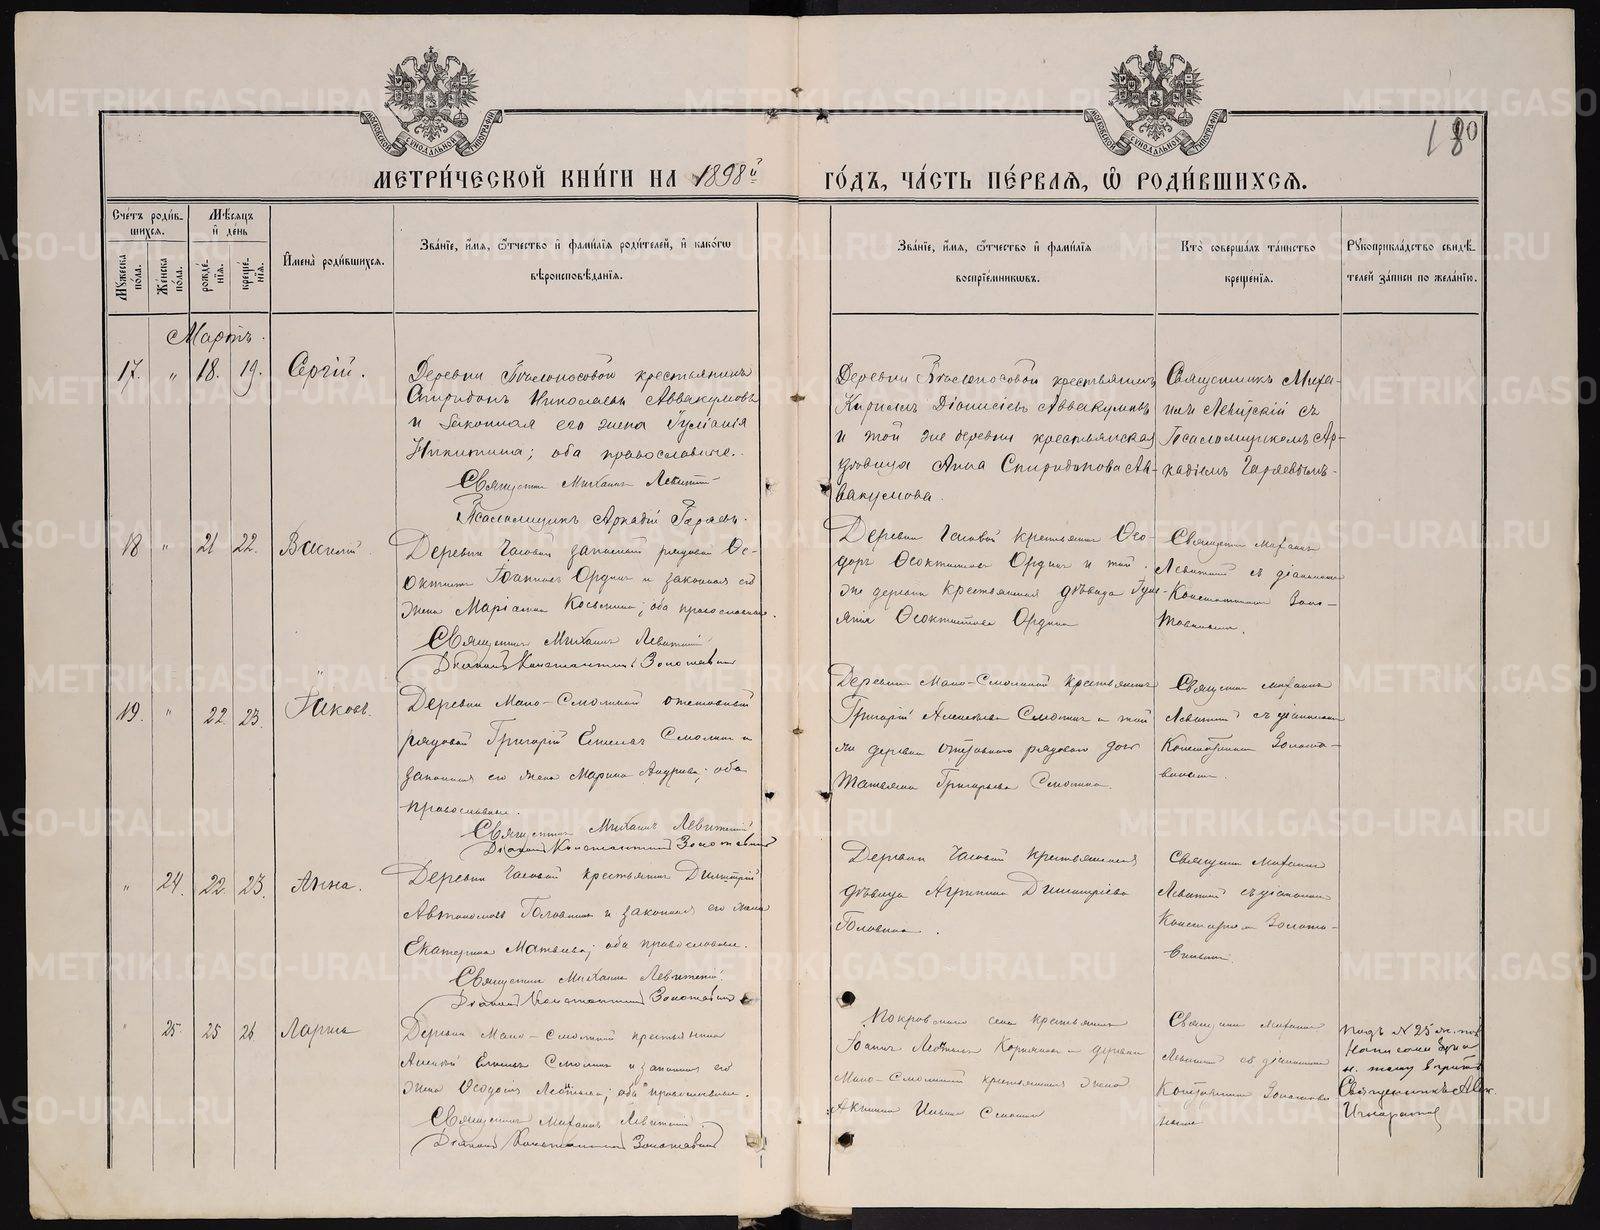 МОСКОВСКОЙ СУНОДАЛЬНОЙ ТИПОГРАФІИ
МОСКОВСКОЙ СУНОДАЛЬНОЙ ТИПОГРАФІИ
180
МЕТРИ́ЧЕСКОЙ КНИ́ГИ НА 1898й
ГО́ДЪ, ЧА́СТЬ ПЕ́РВАѦ, Ѡ҆ РОДИ́ВШИХСѦ.
Сче́тъ роди́в-
шихсѧ.
Мѣ́сѧцъ
и҆ де́нь
Мꙋ́жеска по́ла.
Же́нска по́ла.
рожде́-
нїѧ.
креще́-
нїѧ.
И҆мена̀ роди́вшихсѧ.
Зва́нїе, и҆́мѧ, ѻ҆́тчество и҆ фами́лїѧ роди́телей, и҆ како́гѡ
вѣроисповѣ́данїѧ.
Зва́нїе, и҆́мѧ, ѻ҆́тчество и҆ фами́лїѧ
воспрїе́мникѡвъ.
Кто̀ соверша́лъ та́инство
креще́нїѧ.
Рꙋкоприкла́дство свидѣ́-
телей за́писи по жела́нїю.
Мартъ.
17. " 18. 19. Сергій.
Деревни крестьянинъ
Спиридонъ Николаевъ Аввакумовъ
и законная его жена Іуліанія
Никитина; оба православные.
Священникъ Михаилъ Левитскій
Псаломщикъ Аркадій Гаряевъ.
Деревни крестьянинъ
Кириллъ Діонисіевъ Аввакумовъ
и той же деревни крестьянская
дѣвица Анна Спиридонова Ав-
вакумова.
Священникъ Миха-
илъ Левитскій съ
Псаломщикомъ Ар-
кадіемъ Гаряевымъ.
18 " 21 22. Василій.
Деревни Часовой запасный рядовой Ѳе-
октистъ Іоанновъ Ординъ и законная его
жена Маріамна Косьмина; оба православные.
Священникъ Михаилъ Левитскій
Діаконъ Константинъ Золотавинъ
Деревни Часовой крестьянинъ Ѳео-
доръ Ѳеоктистовъ Ординъ и той
же деревни крестьянская дѣвица Іулі-
анія Ѳеоктистова Ордина
Священникъ Михаилъ
Левитскій съ діакономъ
Константиномъ Золо-
тавинымъ.
19. " 22 23. Іаковъ.
Деревни Мало-Смолиной отставный
рядовой Григорій Смолинъ и
законная его жена Марина Андреева; оба
православные.
Священникъ Михаилъ Левитскій
Діаконъ Константинъ Золотавинъ
Деревни Мало-Смолиной крестьянинъ
Григорій Алексѣевъ Смолинъ и той
же деревни отставного рядового дочь
Татьяна Григорьева Смолина.
Священникъ Михаилъ
Левитскій съ діакономъ
Константиномъ Золота-
винымъ.
" 24. 22. 23. Анна.
Деревни Часовой крестьянинъ Димитрій
Автономовъ Головинъ и законная его жена
Екатерина Матвѣева; оба православные.
Священникъ Михаилъ Левитскій
Діаконъ Константинъ Золотавинъ
Деревни Часовой крестьянская
дѣвица Агрипина Димитріева
Головина.
Священникъ Михаилъ
Левитскій съ діакономъ
Константиномъ Золота-
винымъ.
" 25. 25 26 Ларисса
Деревни Мало-Смолиной крестьянинъ
Алексѣй Смолинъ и законная его
жена Ѳеодосія; оба православные.
Священникъ Михаилъ Левитскій
Діаконъ Константинъ Золотавинъ
Покровскаго села крестьянинъ
Іоаннъ и деревни
Мало-Смолиной крестьянская жена
Акилина Смолина
Священникъ Михаилъ
Левитскій съ діакономъ
Константиномъ Золотави-
нымъ
подъ № 25 ж. пола
Священникъ Алек.